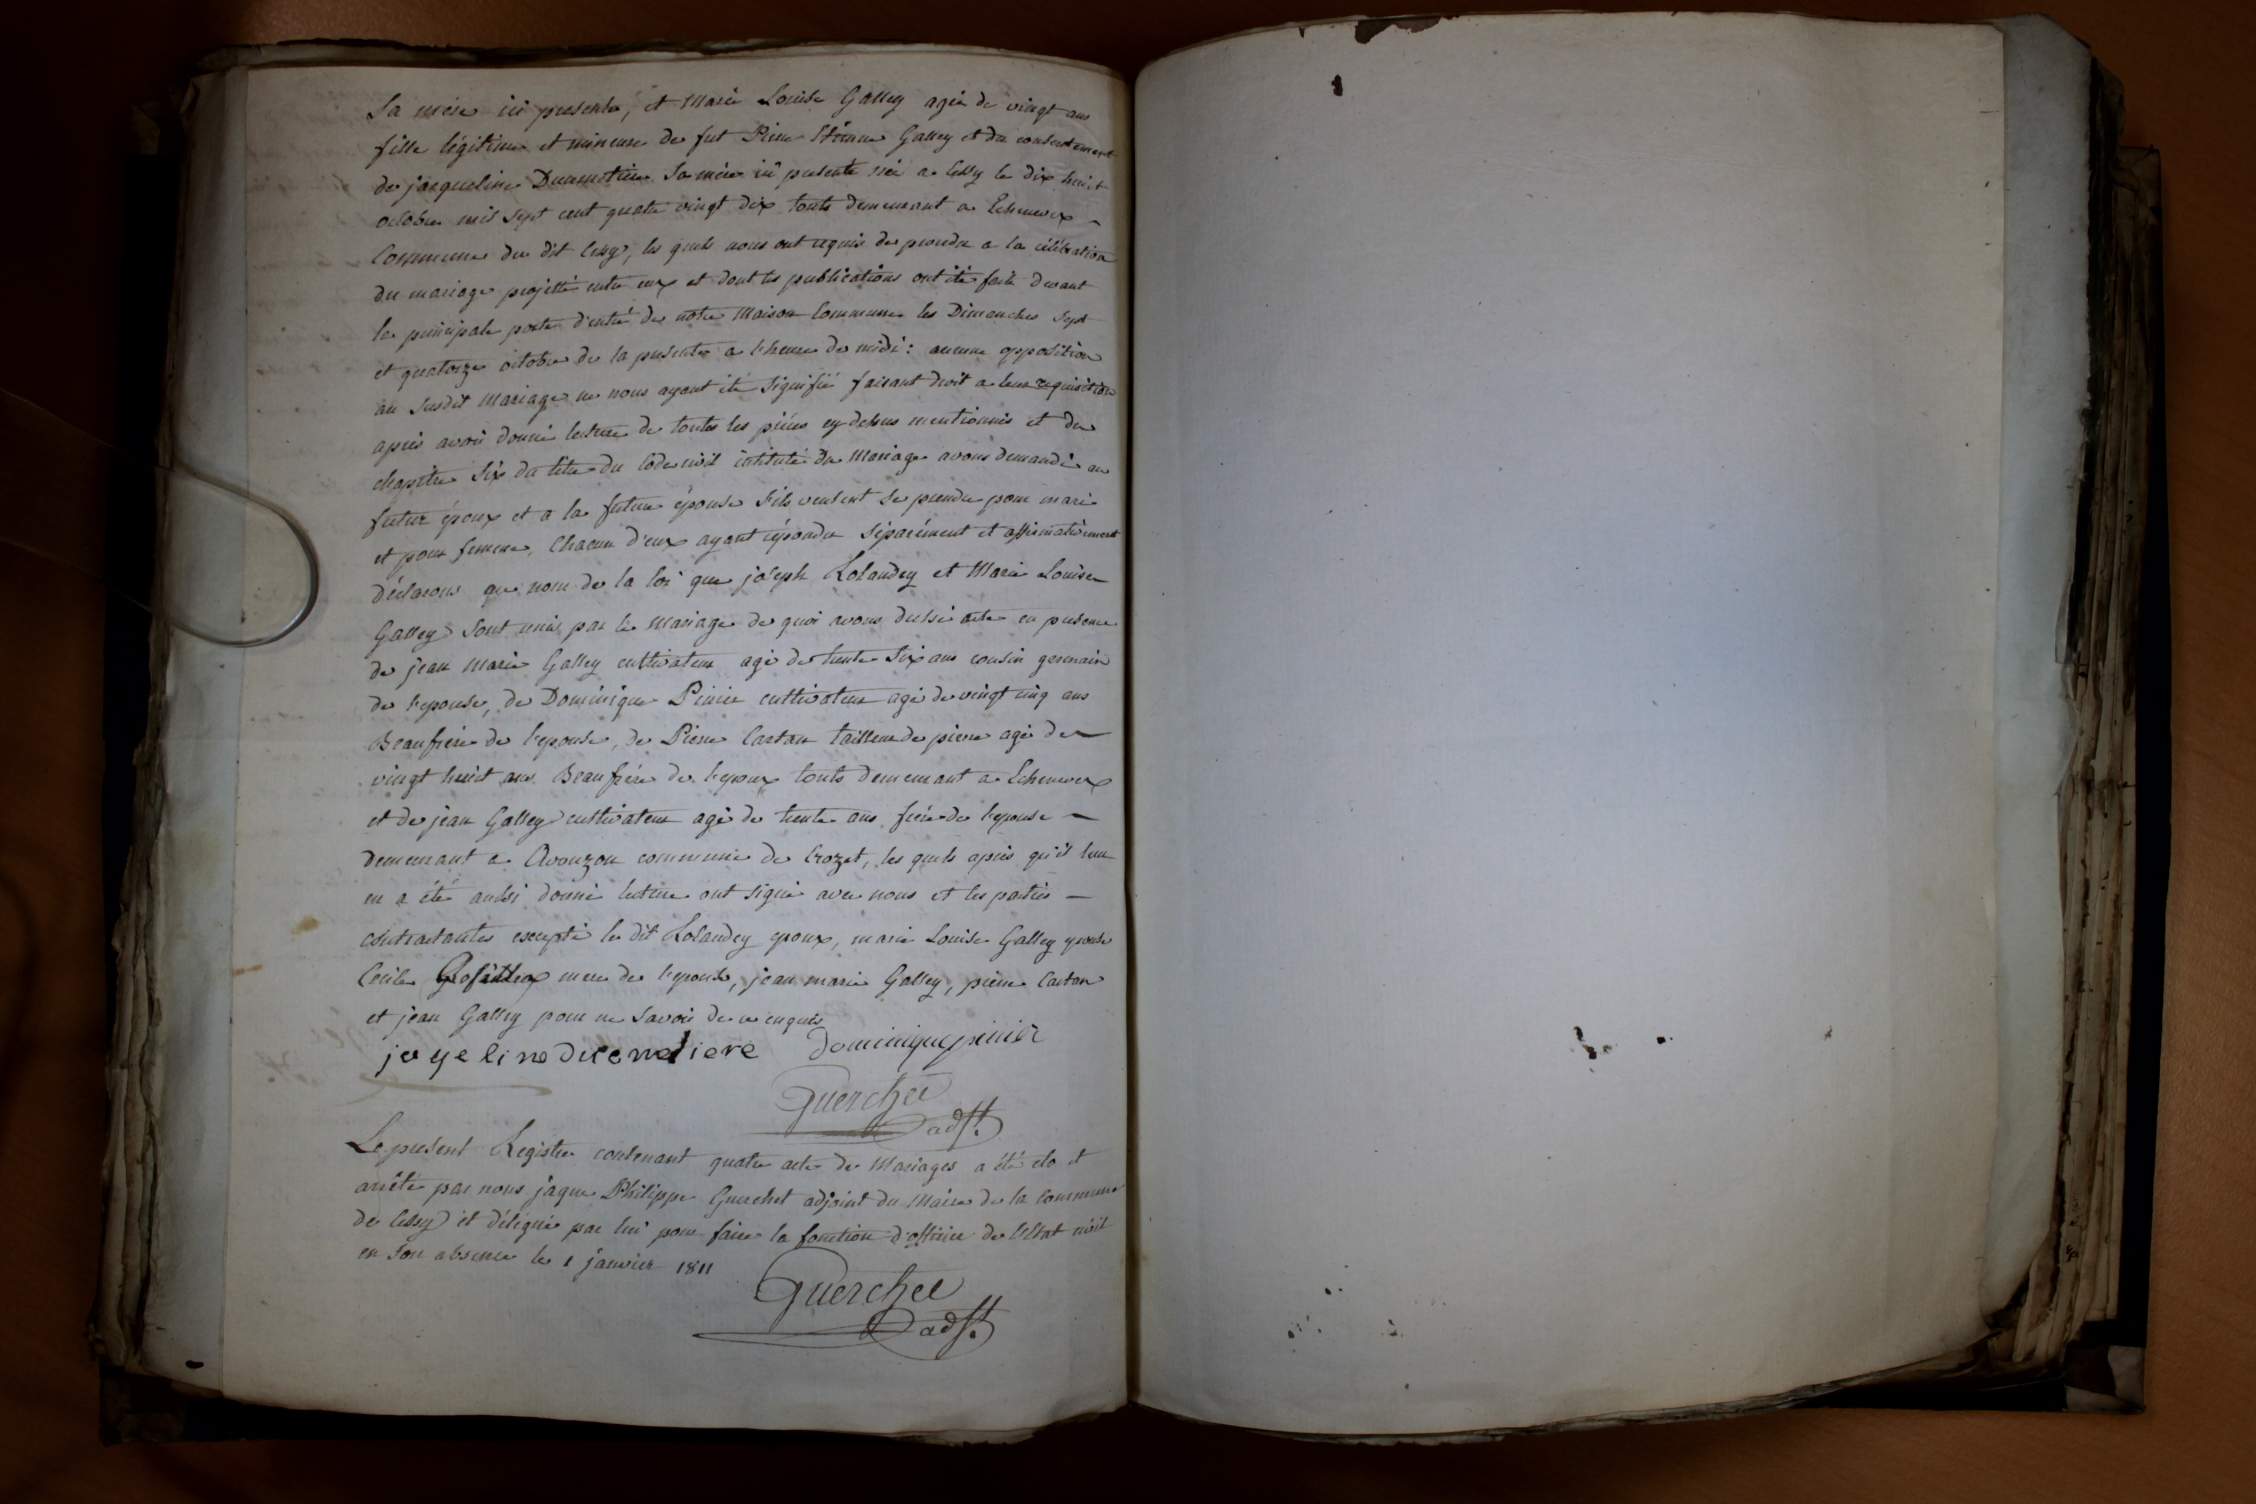 Sa mère ici presente, et Marie Louise Galley agée de vingt ans
fille légitime et mineure de fut Pierre Etienne Galley et du consentement
de jacqueline Ducrmetiere Sa mère ici presente née a Cessy le dix huit
octobre mil Sept cent quatre vingt dix touts demeurant a Echenevex
Commune du dit Cessy, les quels nous ont requis de proceder a la célébration
du mariage projetté entre eux et dont les publications ont été faite devant
la principale porte d'entré de notre Maison Commune les Dimanches Sept
et quatorze octobre de la presente a l'heure de midi: aucune opposition
au Susdit Mariage ne nous ayant été Signifié faisant droit a leur requisition
après avoir donné lecture de toutes les pièces cy dessus mentionnés et du
chapitre Six du titre du Code civil intitulé du Mariage avons demandé au
futur époux et a la future épouse S'ils veulent Se prendre pour mari
et pour femme, Chacun d'eux ayant répondu Séparément et affirmativement
déclarons au nom de la loi que joseph Rolandey et Marie Louise
Galley Sont unis par le Mariage de quoi avons dressé acte en presence
de jean Marie Galley cultivateur agé de trente Six ans cousin germain
de l'epouse, de Dominique Pinier cultivateur agé de vingt cinq ans
Beaufrère de l'epouse, de Pierre Cartan tailleur de pierre agé de
vingt huit ans Beaufrère de l'epoux touts demeurant a Echenevex
et de jean Galley cultivateur agé de trente ans frère de l'epouse
demeurant a Avouzon commune de Crozet, les quels après qu'il leur
en a été aussi donné lecture ont Signé avec nous et les parties
contractantes excepté le dit Rolandey epoux, marie Louise Galley epouse
Cecile mere de l'epoux, jean marie Galley, pierre Cartan
et jean Galley pour ne Savoir de ce enquis
jaqeline ducrmetiere dominique pinier
Guerchet
adjt.
Le present Registre contenant quatre acte de Mariages a été clo et
arrêté par nous jaque Philippe Guerchet adjoint du Maire de la Commune
de Cessy et délégué par lui pour faire la fonction d'officier de l'Etat civil
en Son absence le 1 janvier 1811
Guerchet
adjt.